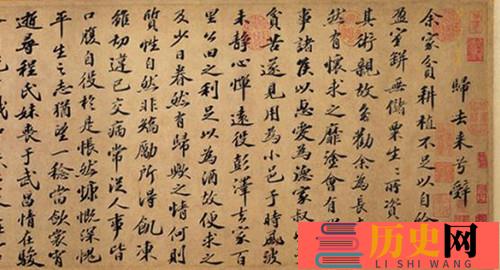 歸去來兮辭
余家貧耕植不足以自給
盈室缾無儲粟生〻所資
其術親故多勸余為長
然有懷求之靡途會有
事諸侯以惠愛為德家叔
貧苦遂見用為小邑于時風波
未靜心憚遠役彭澤去家百
里公田之利足以為酒故便求之
及少日眷然有歸歟之情何則
質性自然非矯勵所得飢凍
雖切違己交病常從人事皆
口腹自役於是悵然慷慨深愧
平生之志猶望一稔當斂裳宵
逝尋程氏妹喪于武昌情在駿
历史网
LI SHI WANG